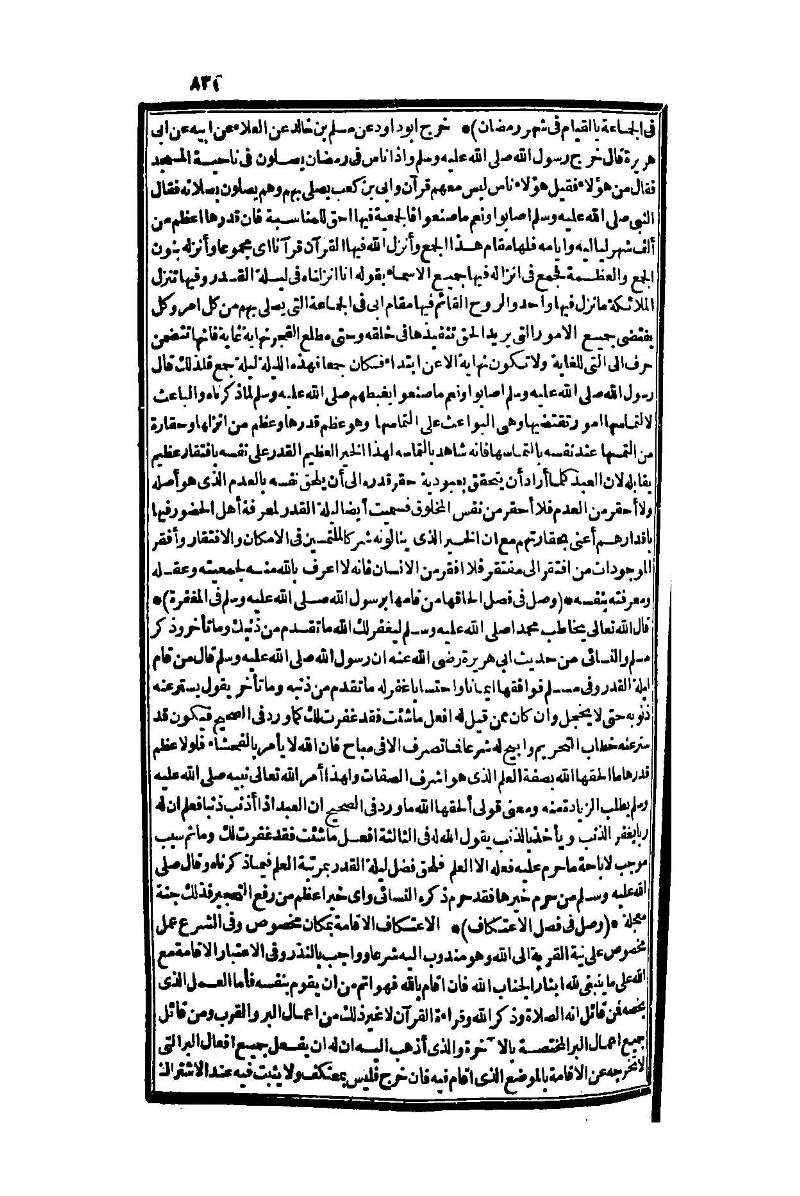 ٨٣٤
في الجماعة بالقيام في شهر رمضان)* خرج ابو داود عن مسلم بن خالد عن العلاء عن ابيه عن ابى
هريرة قال خرج رسول الله صلى الله عليه وسلم واذا ناس في رمضان يصلون في ناحية المسجد
فقال من هؤلاء فقيل هؤلاء ناس ليس معهم قرآن وابى بن كعب يصلى بهم وهم يصلون بصلاته فقال
النبى صلى الله عليه وسلم اصابوا ونعم ما صنعوا فالجمعية فيها احق للمناسبة فان قدرها اعظم من
ألف شهر لياليه وايامه فلها مقام هذا الجمع وأنزل الله فيها القرآن قرآنا اى مجموعا وأنزله بنون
الجمع والعظمة فجمع فى انزاله فيها جميع الاسماء بقوله انا انزلناه فى ليلة القدر وفيها تنزل
الملائكة ما نزل فيها واحد والروح القائم فيها مقام ابى فى الجماعة التى يصلى بهم من كل امر وكل
يقتضى جميع الامور التى يريد الحق تنفيذها فى خلقه وحتى مطلع الفجر نهاية غاية فانها تتضمن
حرف الى التى للغاية ولا تكون نهاية الا عن ابتداء فكان جمعا فهذه الليلة ليلة جمع فلذلك قال
رسول الله صلى الله عليه وسلم اصابوا ونعم ما صنعوا يغبطهم صلى الله عليه وسلم لما ذكرناه والباعث
لالتماسها امور تقتضيها وهى البواعث على التماسها وهو عظم قدرها وعظم من انزلها وحقارة
من التمسها عند نفسه بالتماسها فانه شاهد بالتماسه لهذا الخير العظيم القدر على نفسه بافتقار عظيم
يقابله لان العبد كلما أراد أن يتحقق بعبودية حقر قدره الى أن يلحق نفسه بالعدم الذى هو أصله
ولا أحقر من العدم فلا أحقر من نفس المخلوق فسميت أيضا ليلة القدر لمعرفة أهل الحضور فيها
باقدارهم أعنى بحقارتهم مع ان الخير الذى ينالونه شركا للملتمسين فى الامكان والافتقار وأفقر
الموجودات من افتقر الى مفتقر فلا افقر من الانسان فانه لا اعرف بالله منه لجمعيته وعقله
ومعرفته بنفسه *(وصل فى فصل الحاقها من قامها برسول الله صلى الله عليه وسلم فى المغفرة)*
قال الله تعالى يخاطب محمدا صلى الله عليه وسلم ليغفر لك الله ما تقدم من ذنبك وما تأخر وذكر
مسلم والنسائى من حديث ابى هريرة رضى الله عنه ان رسول الله صلى الله عليه وسلم قال من قام
ليلة القدر وفى مسلم فوافقها ايمانا واحتسابا غفر له ما تقدم من ذنبه وما تأخر يقول يستر عنه
ذنوبه حتى لا يخجل وان كان ممن قيل له افعل ما شئت فقد غفرت لك كما ورد فى الصحيح فيكون قد
ستر عنه خطاب التحريم وابيح له شرعا فما تصرف الا فى مباح فان الله لا يأمر بالفحشاء فلولا عظم
قدرها ما الحقها الله بصفة العلم الذى هو اشرف الصفات ولهذا أمر الله تعالى نبيه صلى الله عليه
وسلم بطلب الزيادة منه ومعنى قولى ألحقها الله ما ورد فى الصحيح ان العبد اذا أذنب ذنبا فعلم ان له
ربا يغفر الذنب ويأخذ بالذنب يقول الله له فى الثالثة افعل ما شئت فقد غفرت لك وما ثم سبب
موجب لاباحة ما حرم عليه فعله الا العلم فلحق فضل ليلة القدر بمرتبة العلم فيما ذكرناه وقال صلى
الله عليه وسلم من حرم خيرها فقد حرم ذكره النسائى واى خير اعظم من رفع التحجير فذلك جنة
معجلة *(وصل فى فصل الاعتكاف)* الاعتكاف الاقامة بمكان مخصوص وفى الشرع عمل
مخصوص على نية القربة الى الله وهو مندوب اليه شرعا وواجب بالنذر وفى الاعتبار الاقامة مع
الله على ما ينبغى لله ايثارا لجناب الله فان اقام بالله فهو اتم من ان يقوم بنفسه فأما العمل الذى
يخصه فمن قائل انه الصلاة وذكر الله وقراءة القرآن لا غير ذلك من اعمال البر والقرب ومن قائل
جميع اعمال البر المختصة بالآخرة والذى أذهب اليه ان له ان يفعل جميع افعال البر التى
لا تخرجه عن الاقامة بالموضع الذى اقام فيه فان خرج فليس بمعتكف ولا يثبت فيه عند الاشتراك